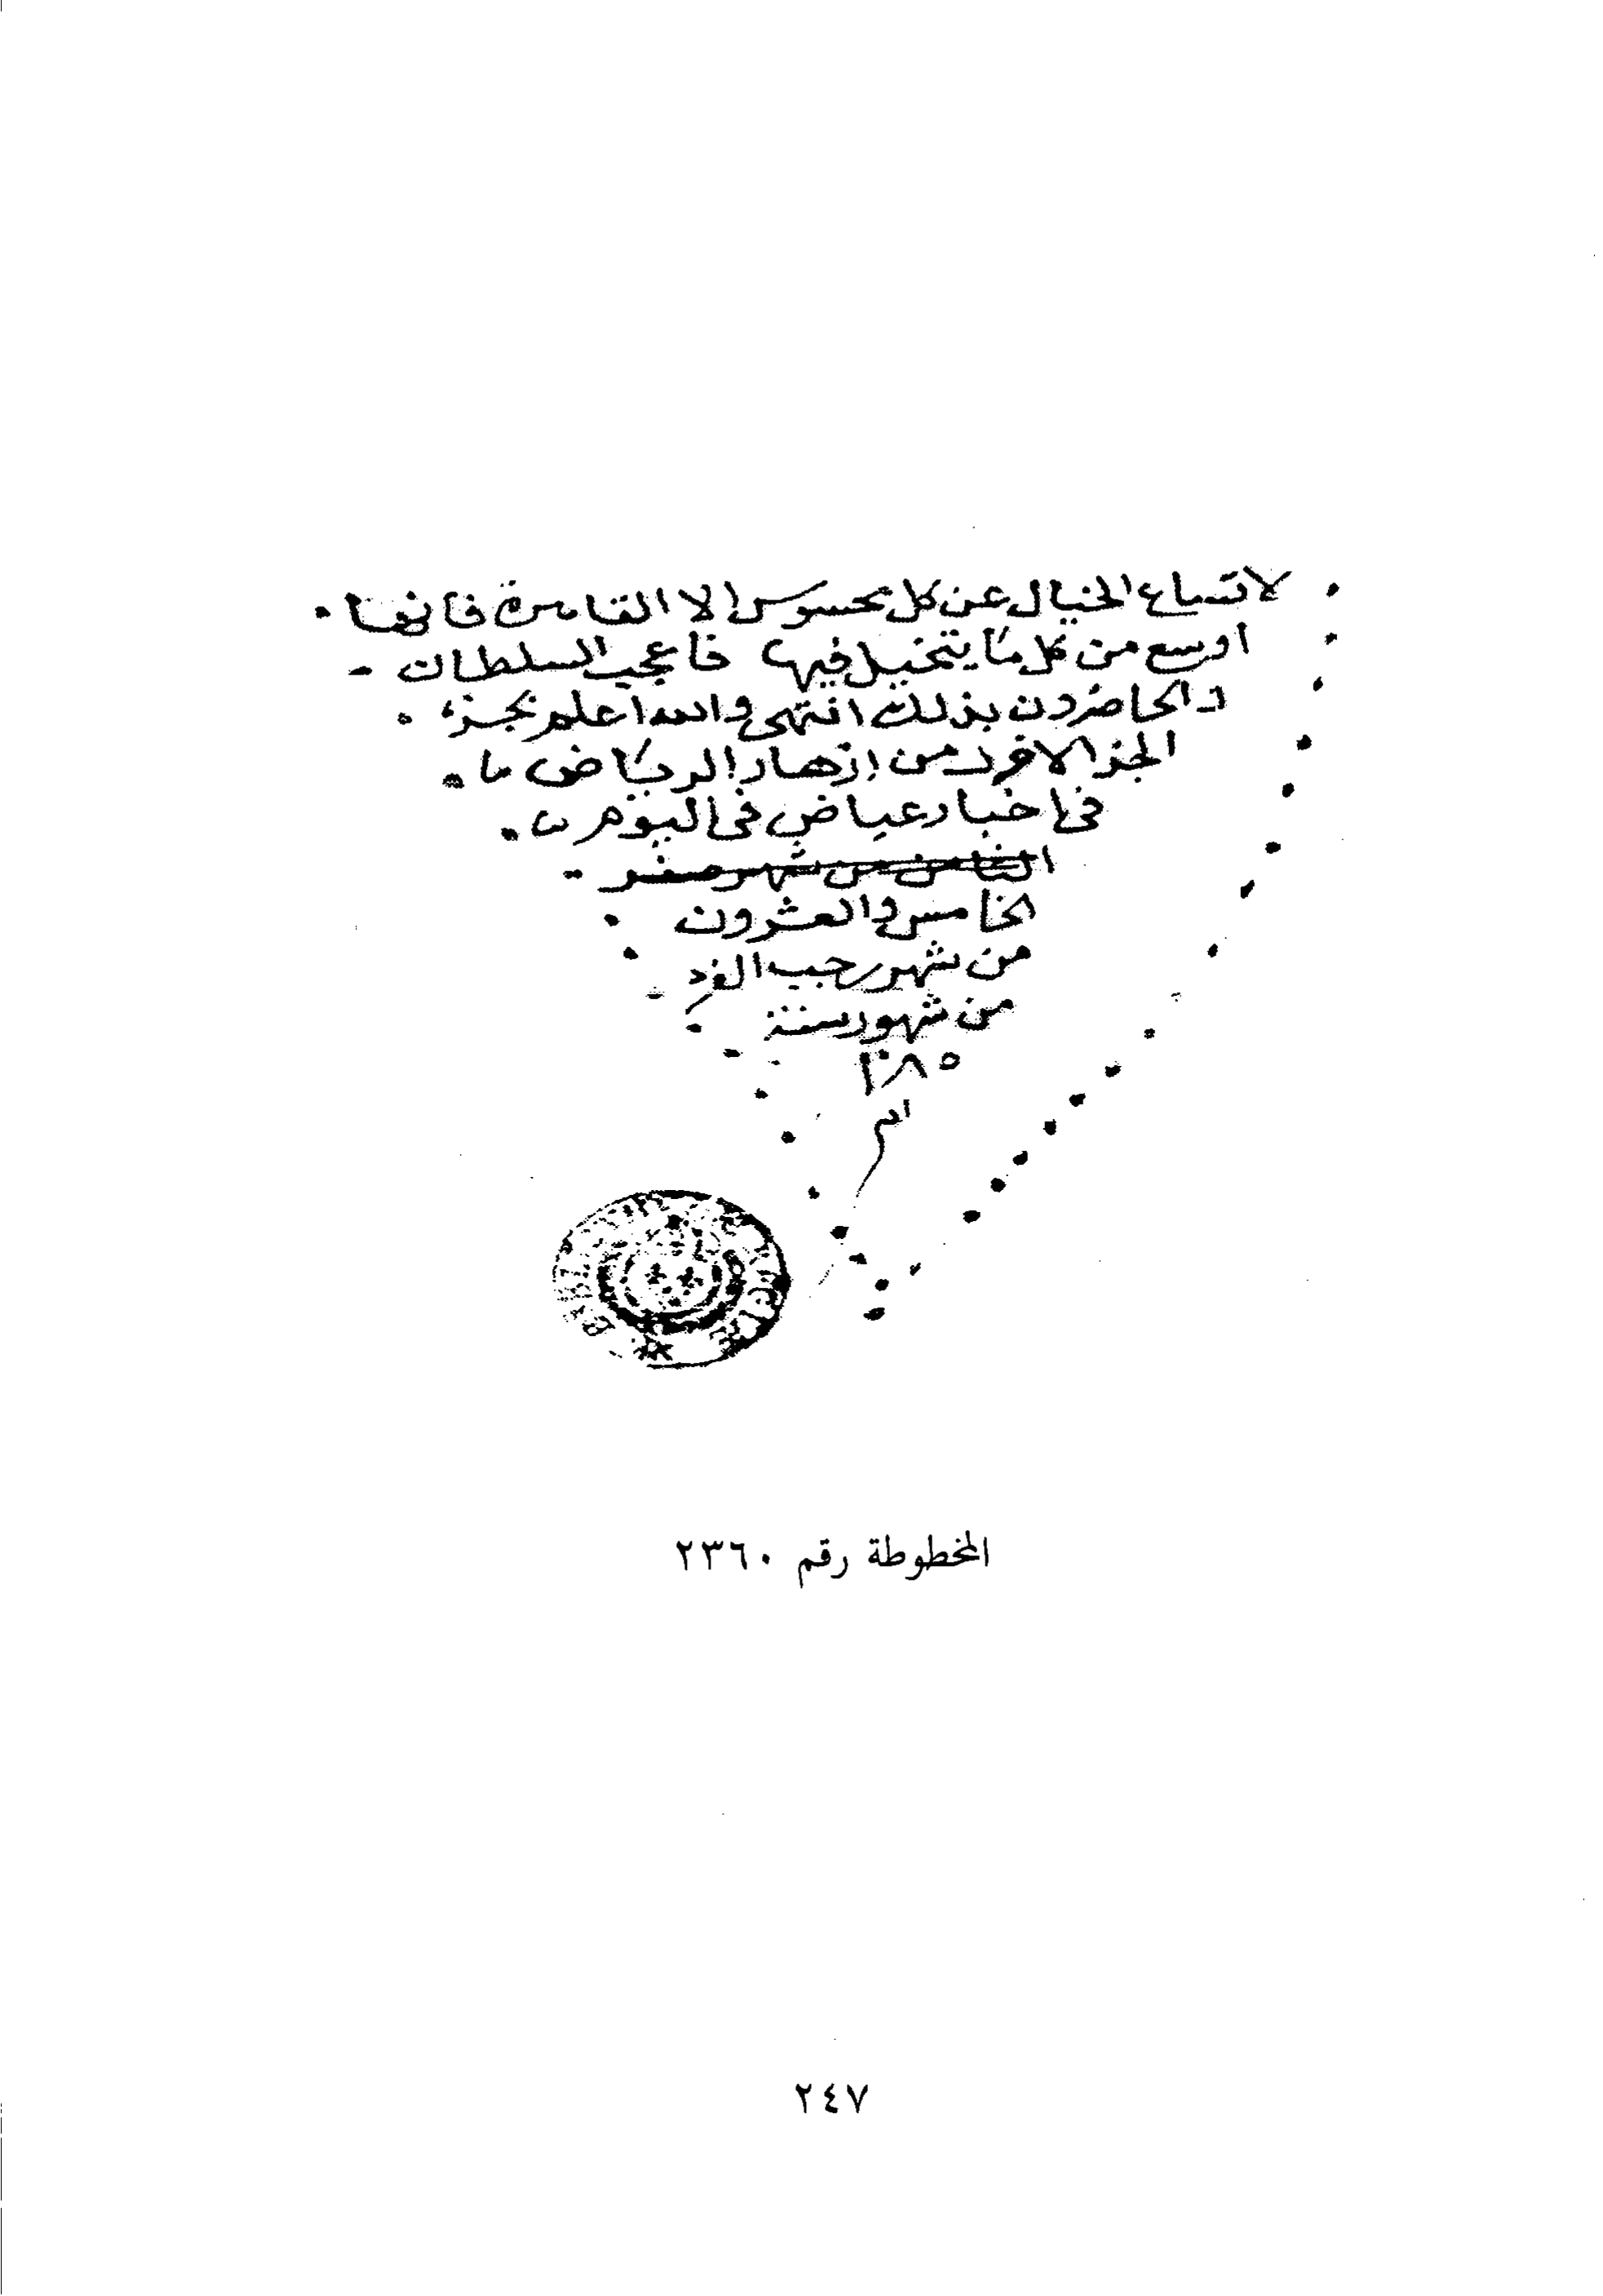 لاتساع الخيال عن كل محسوس الا القاهرة فانها
اوسع من كل ما يتخيل فيها فاعجب السلطان
والحاضرون بذلك انتهى والله اعلم نجز
الجز الاخر من ازهار الرياض
في اخبار عياض في اليوم
الثامن من شهر صفر
الخامس والعشرون
من شهر رجب الفرد
من شهور سنة
المخطوطة رقم ٢٣٦٠
٢٤٧